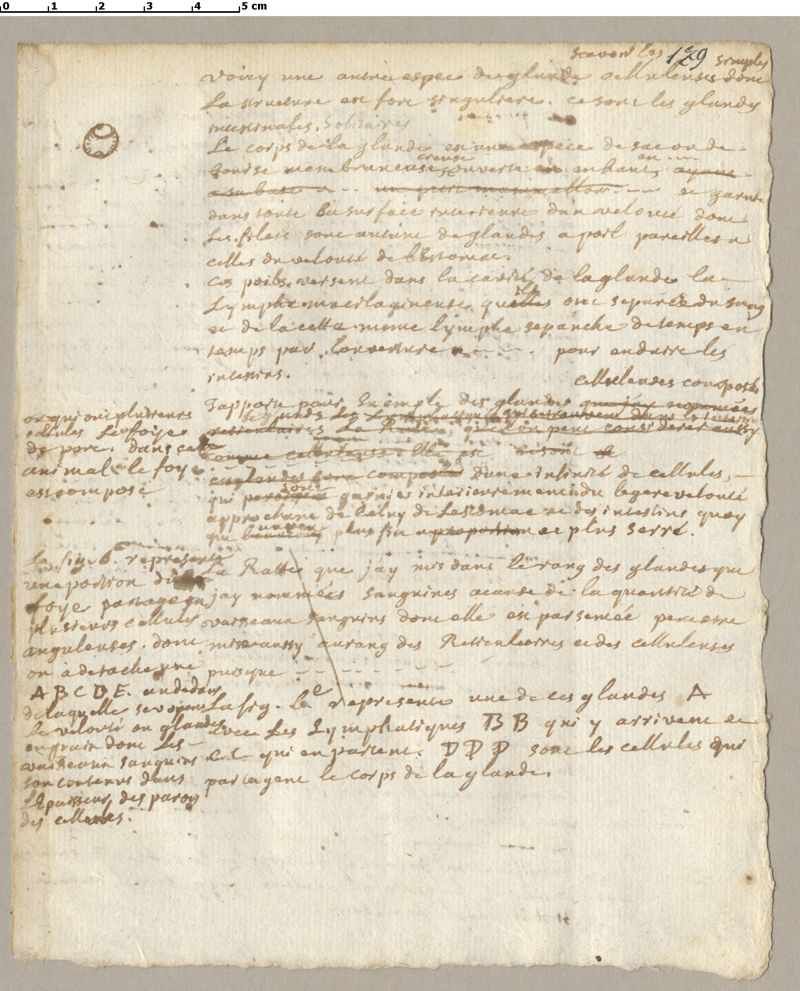 0 1 2 3 4 5 cm
129
scavoir les simples
voicy une autre espece de glande cellulenses donc
la structure est fort singuliere. ce sont les glandes
intestinales. Solitaires
Le corps de la glande est une espece de sac ou de
bourse membraneuse creuse ouverte en en haut
a sa base un petit mammellon et garnie
dans toute la surface interieure d'un velouté dont
les filets sont autant de glandes a poil pareilles a
celles du velouté de l'Estomac.
Ces poils versent dans la cavité de la glande la
Lymphe mucilagineuse qu'ils ont separée du sang
et de la cette meme lymphe sepanche de temps en
temps par l'ouverture pour enduire les
intestins.
cellulenses composées
J'apporte pour Exemple des glandes que jay nommées
reticulaires La Ratte, que l'on peut considerer aussy
comme cellulense. Elle est
composée d'une infinité de cellules,
qui sont garnies interieurement du legere velouté
approchant de Celuy de Lestomac et des intestins quoy
que beaucoup plus fin a proportion et plus serré.
ou qui ont plusieurs
cellules Le foye
de porc. dans cet
animal le foye
est composé
La Ratte que jay mis dans le rang des glandes que
jay nommées sanguines acause de la quantité de
vaisseaux sanguins dont elle est parsemée peut etre
mise aussy au rang des Retticulaires et des cellulenses
puisque
La fig. 6e represente
une portion du
foye partagé en
plusieurs cellules
angulenses. dont
on a detaché une
A B C D E. au dedans
de laquelle se voyent
le velouté ou glandes
en grain dont les
vaisseaux sanguins
sont contenus dans
L'Epaisseur des paroy
des cellules.
La fig. 1e represente une de ces glandes A
avec Les Lymphatiques B B qui y arrivent et
C.C. qui en partent. D D D sont les cellules qui
partagent le corps de la glande.